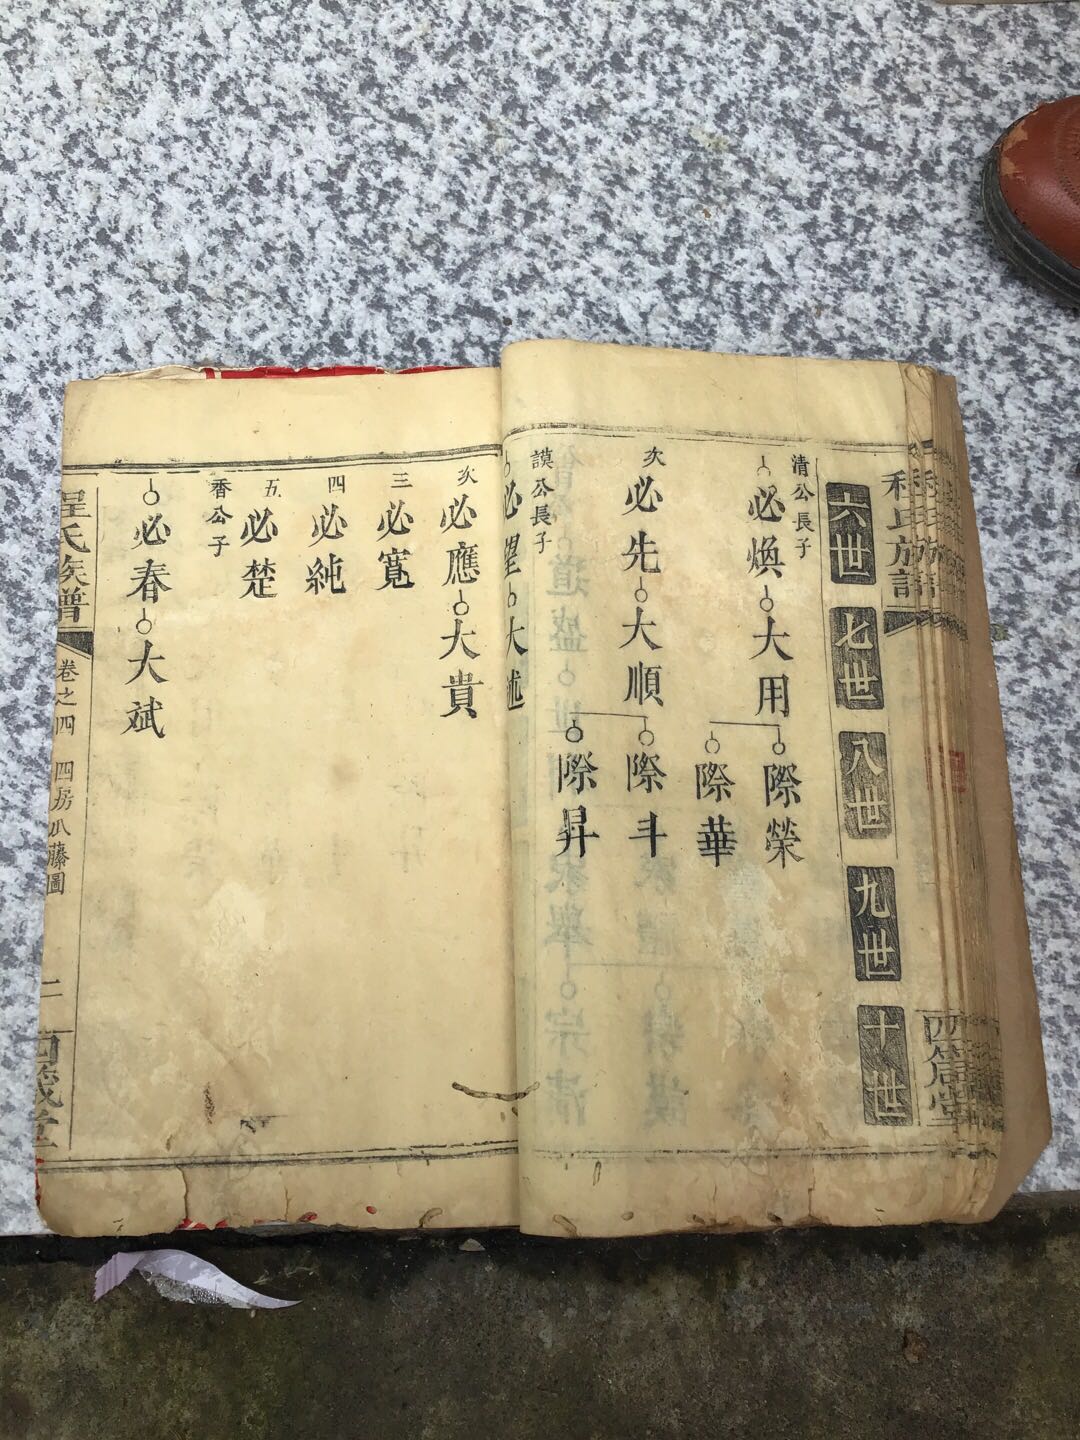 程氏族譜
四箴堂
六世
七世
八世
九世
十世
清公長子
必煥 大用
際榮
際華
次
必先 大順
際斗
際昇
謨公長子
必望 大述
次
必應 大貴
三
必寬
四
必純
五
必楚
香公子
必春 大斌
程氏族譜
卷之四 四房瓜藤圖
二
四箴堂